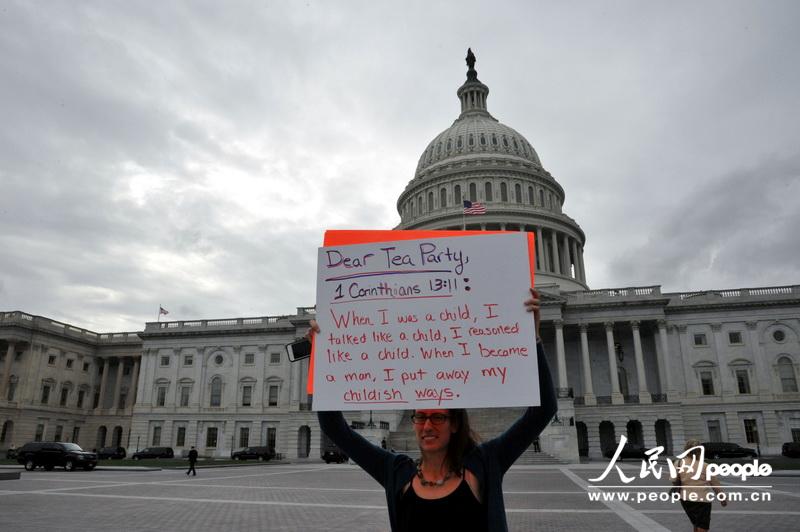 Dear Tea Party,
1 Corinthians 13:11:
When I was a child, I
talked like a child, I reasoned
like a child. When I became
a man, I put away my
childish ways.
人民网 people
www.people.com.cn